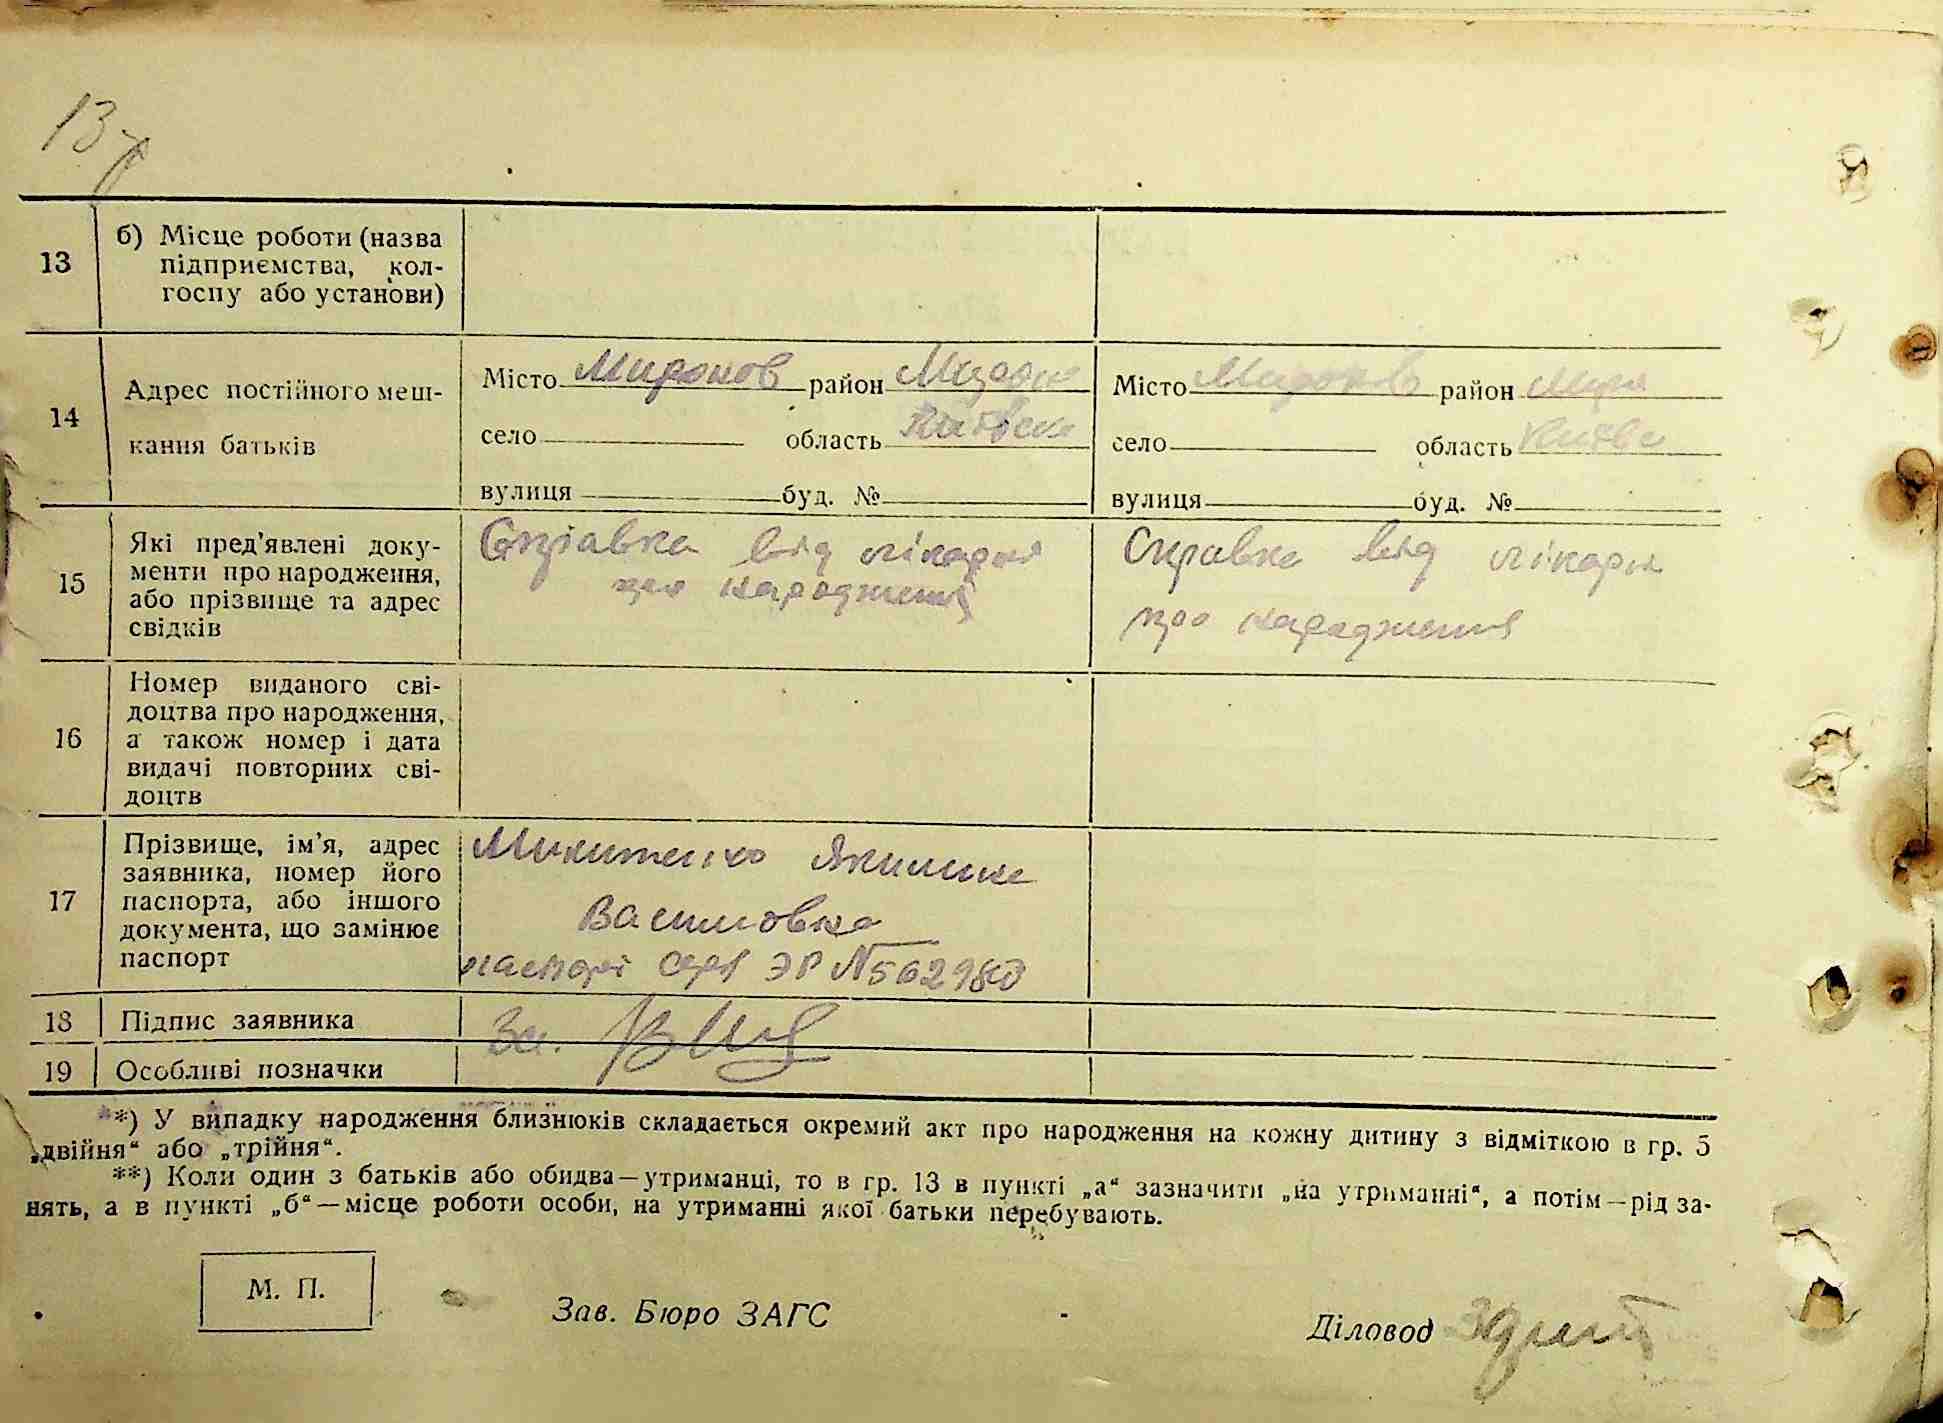 13
13 б) Місце роботи (назва
підприємства, кол-
госпу або установи)
14 Адрес постійного меш-
кання батьків
Місто Миронов район
село область
вулиця буд. №
Місто Миронов район Мир
село область
вулиця буд. №
15 Які пред'явлені доку-
менти про народження,
або прізвище та адрес
свідків
Справка від лікарні
про народження
Справка від лікарні
про народження
16 Номер виданого сві-
доцтва про народження,
а також номер і дата
видачі повторних сві-
доцтв
17 Прізвище, ім'я, адрес
заявника, номер його
паспорта, або іншого
документа, що замінює
паспорт
Микитенко Якилина
Василовна
паспорт ЭР N 562980
18 Підпис заявника
За.
19 Особливі позначки
**) У випадку народження близнюків складається окремий акт про народження на кожну дитину з відміткою в гр. 5
„двійня“ або „трійня“.
**) Коли один з батьків або обидва—утриманці, то в гр. 13 в пункті „а“ зазначити „на утриманні“, а потім—рід за-
нять, а в пункті „б“—місце роботи особи, на утриманні якої батьки перебувають.
М. П.
Зав. Бюро ЗАГС
Діловод